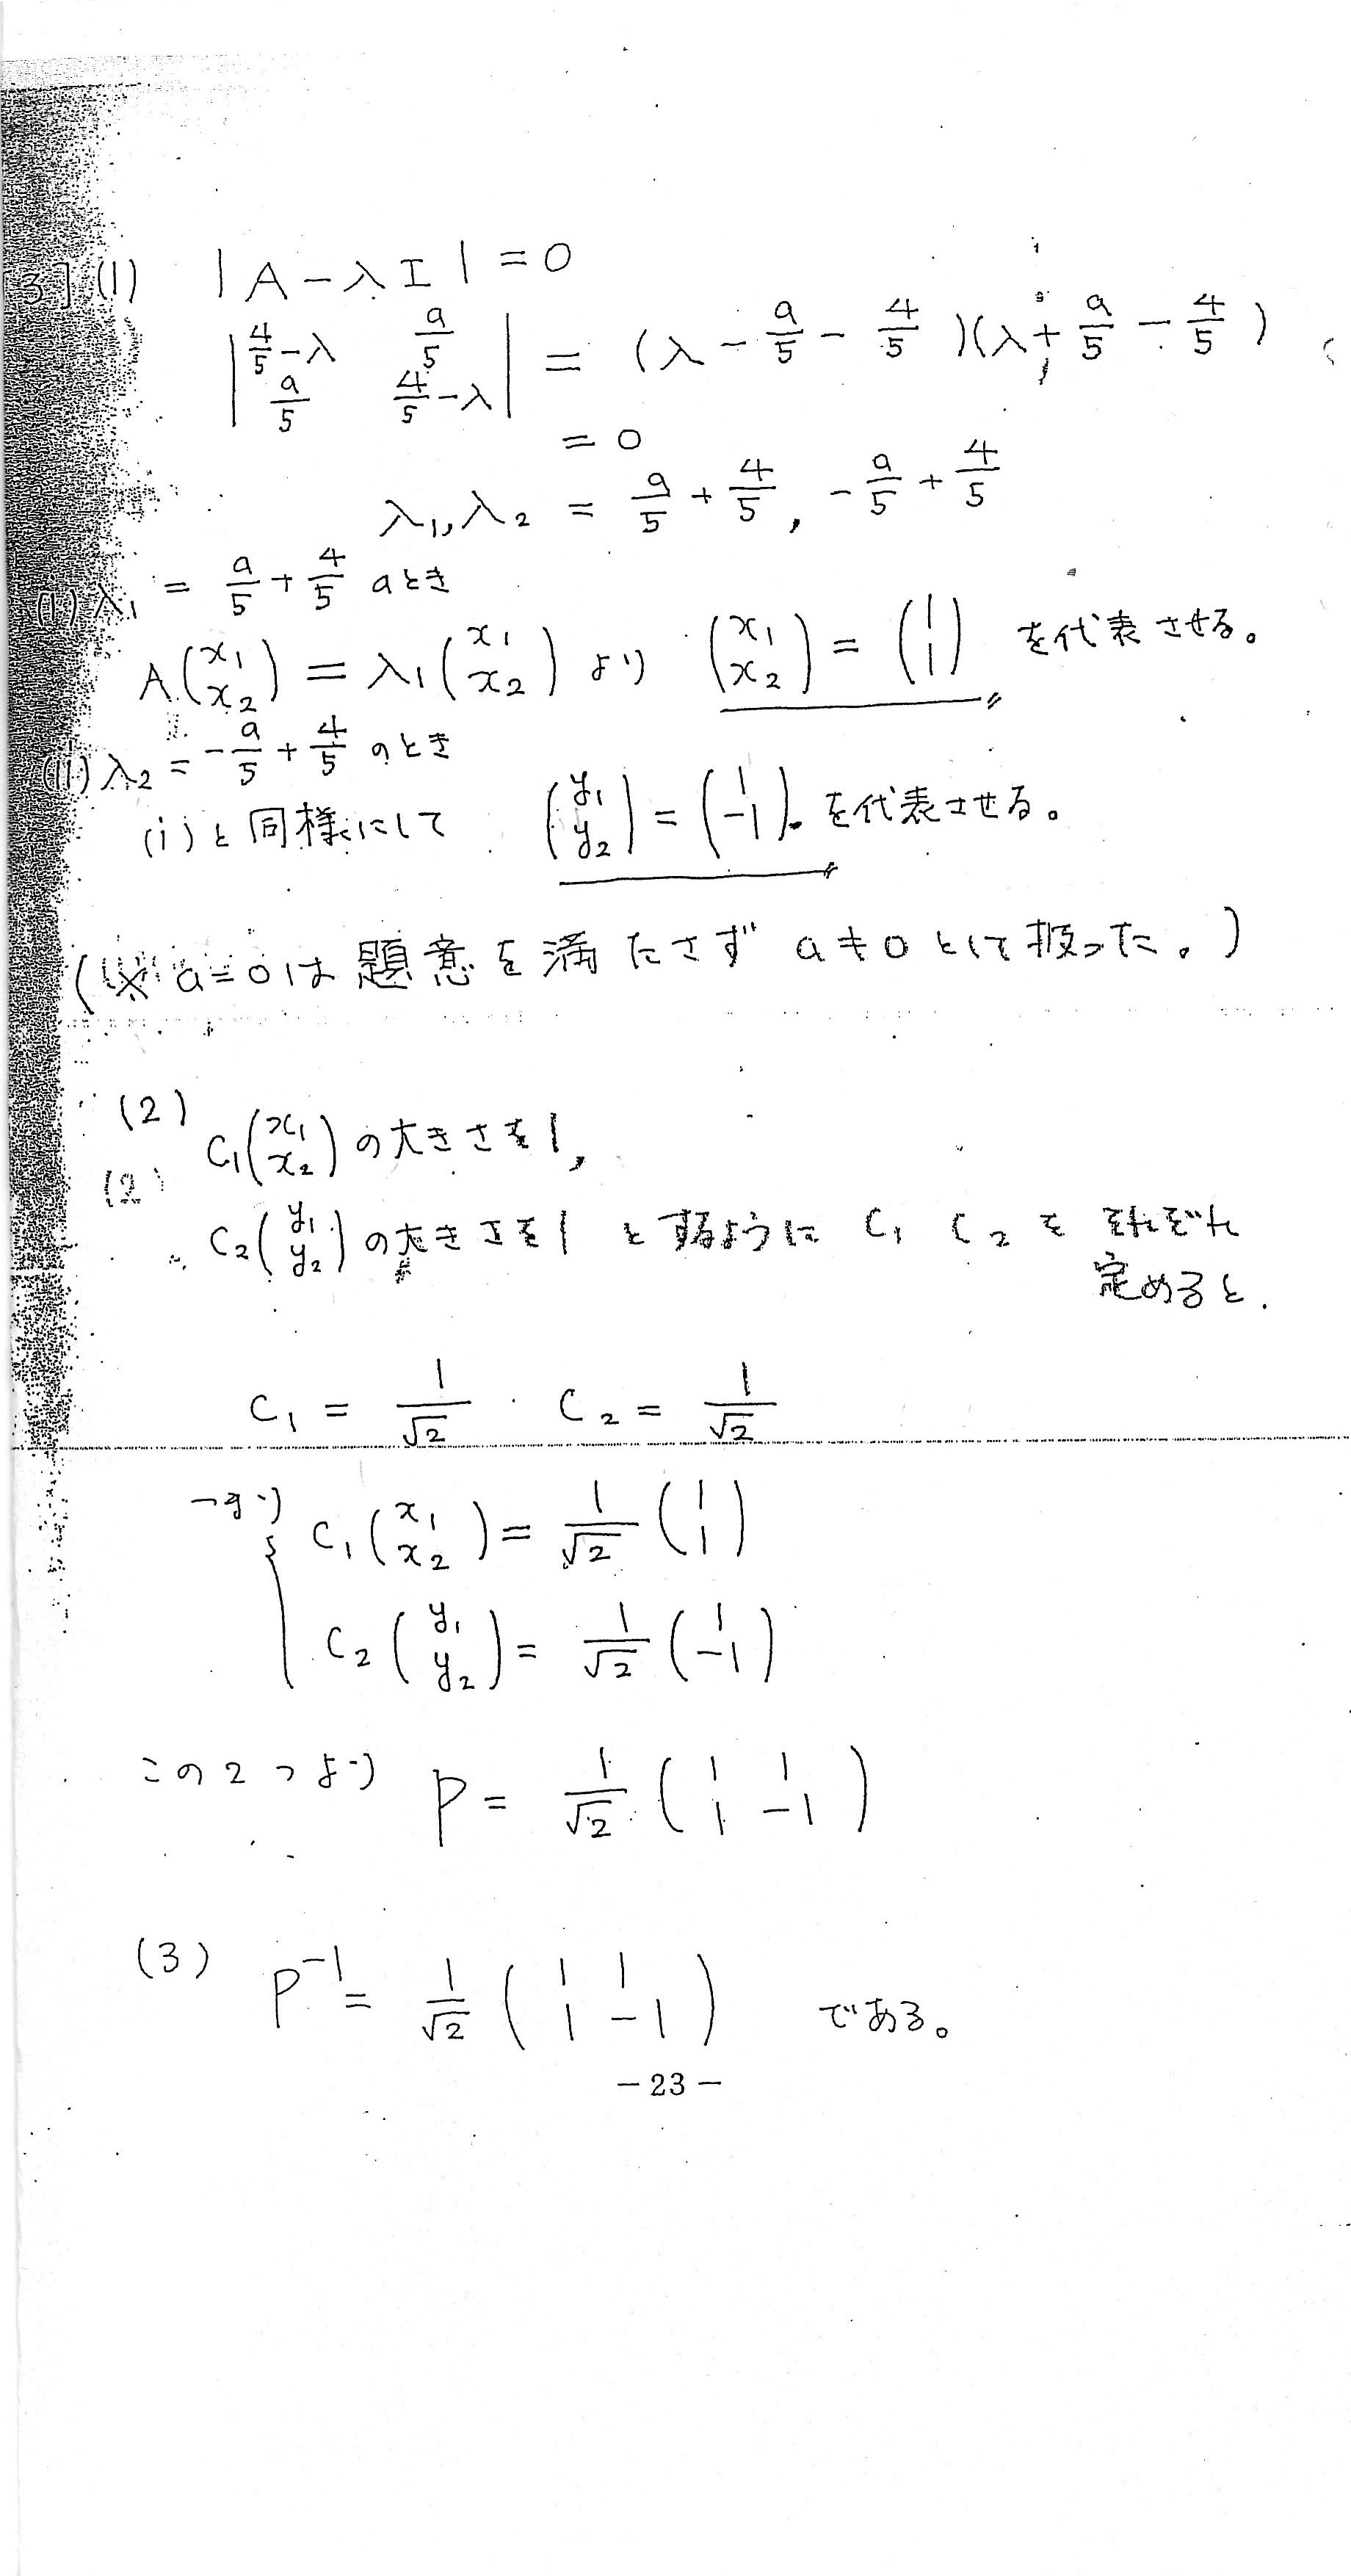 [3](1) |A-λI|=0
|4/5-λ a/5; a/5 4/5-λ| = (λ-a/5-4/5)(λ+a/5-4/5)
=0
λ1,λ2 = a/5+4/5, -a/5+4/5
(i) λ1 = a/5+4/5 のとき
A(x1 x2) = λ1(x1 x2) より (x1 x2) = (1 1) を代表させる。
(ii) λ2 = -a/5+4/5 のとき
(i)と同様にして (y1 y2) = (1 -1) を代表させる。
(※ a=0は題意を満たさず a≠0 として扱った。)
(2) C1(x1 x2)の大きさを1,
(2) C2(y1 y2)の大きさを1 とするように C1 C2 を それぞれ
定めると.
C1 = 1/√2 . C2 = 1/√2
C1(x1 x2) = 1/√2 (1 1)
C2(y1 y2) = 1/√2 (1 -1)
この2つより P = 1/√2 (1 1; 1 -1)
(3) P⁻¹ = 1/√2 (1 1; 1 -1) である。
-23-